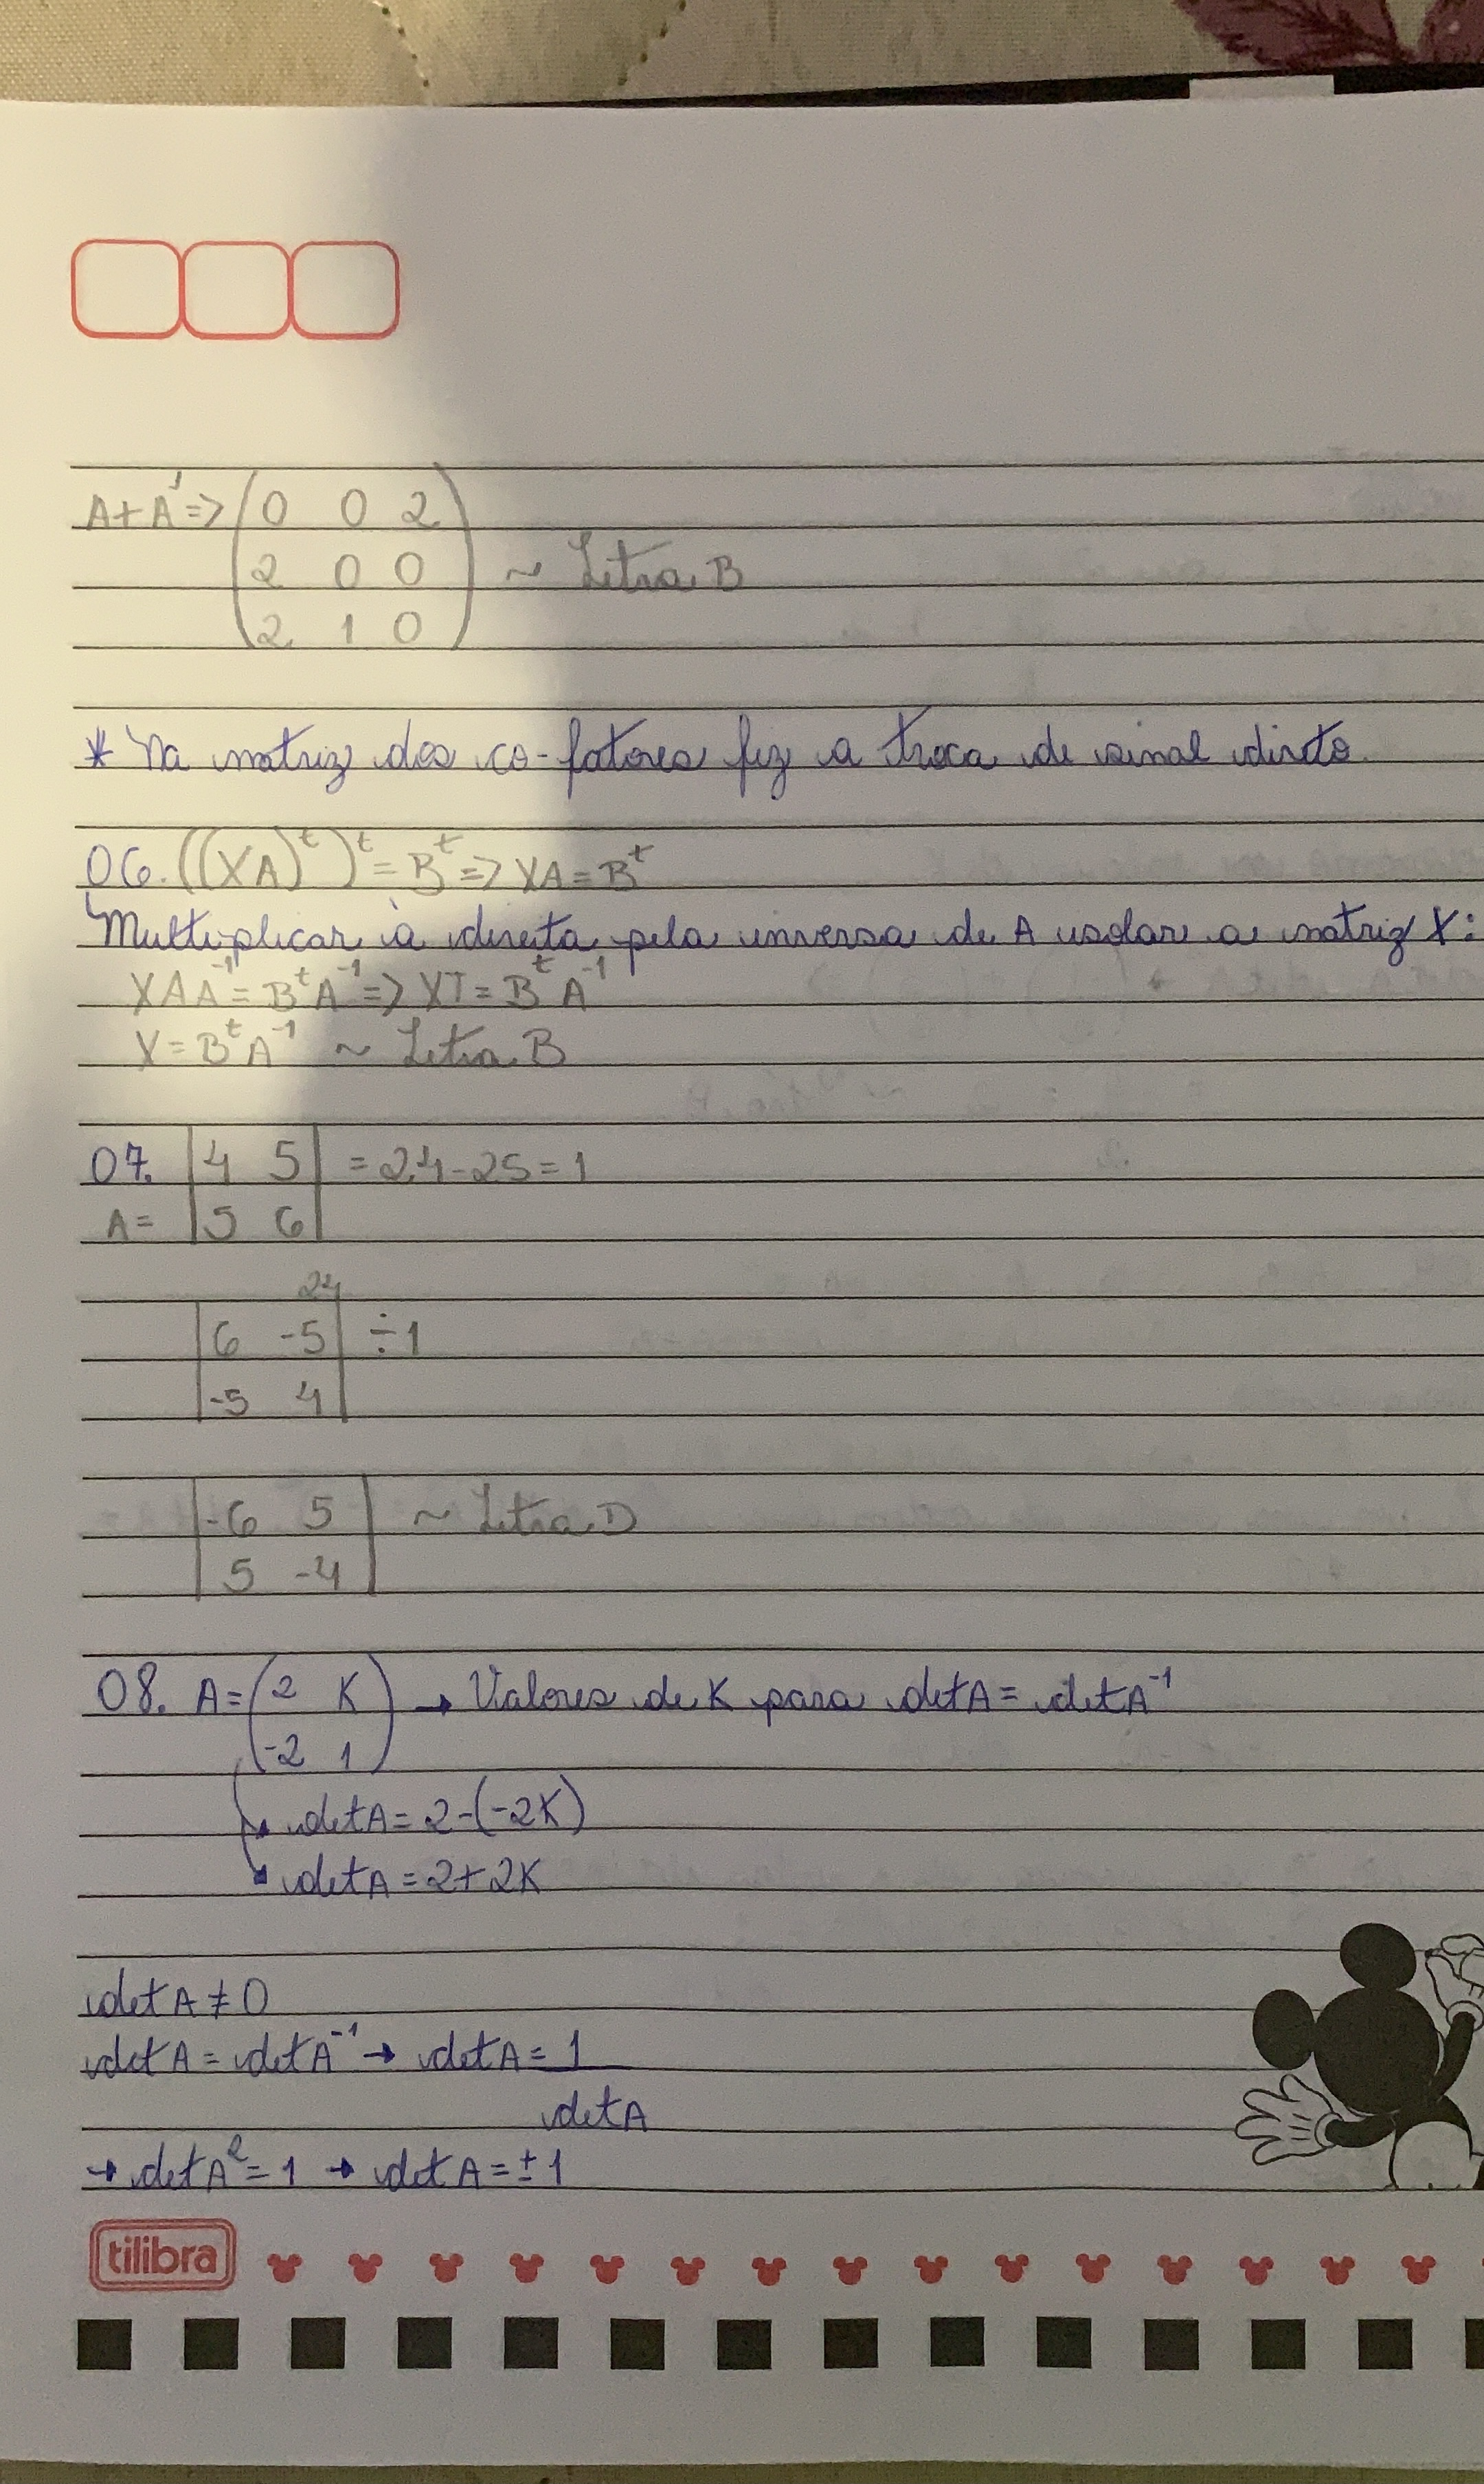 A+A' => (0 0 2
2 0 0 ~ Letra B
2 1 0)
* Na matriz dos co-fatores fiz a troca de sinal direto.
06. ((XA)^t)^t = B^t => XA = B^t
Multiplicar à direita pela inversa de A isolar a matriz X:
XAA^-1 = B^t A^-1 => XI = B^t A^-1
X = B^t A^-1 ~ Letra B
07. |4 5| = 24 - 25 = 1
A = |5 6|
24
|6 -5| ÷ 1
|-5 4|
|-6 5| ~ Letra D
|5 -4|
08. A = (2 K → Valores de K para det A = det A^-1
-2 1)
det A = 2 - (-2K)
det A = 2 + 2K
det A ≠ 0
det A = det A^-1 → det A = 1
det A
→ det A^2 = 1 → det A = ± 1
tilibra